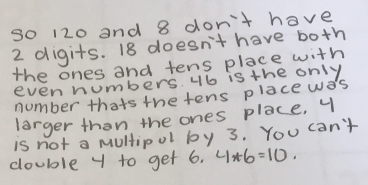 so 120 and 8 don't have
2 digits. 18 doesn't have both
the ones and tens place with
even numbers. 46 is the only
number thats the tens place was
larger than the ones place. 4
is not a multipul by 3. You can't
double 4 to get 6. 4*6=10.